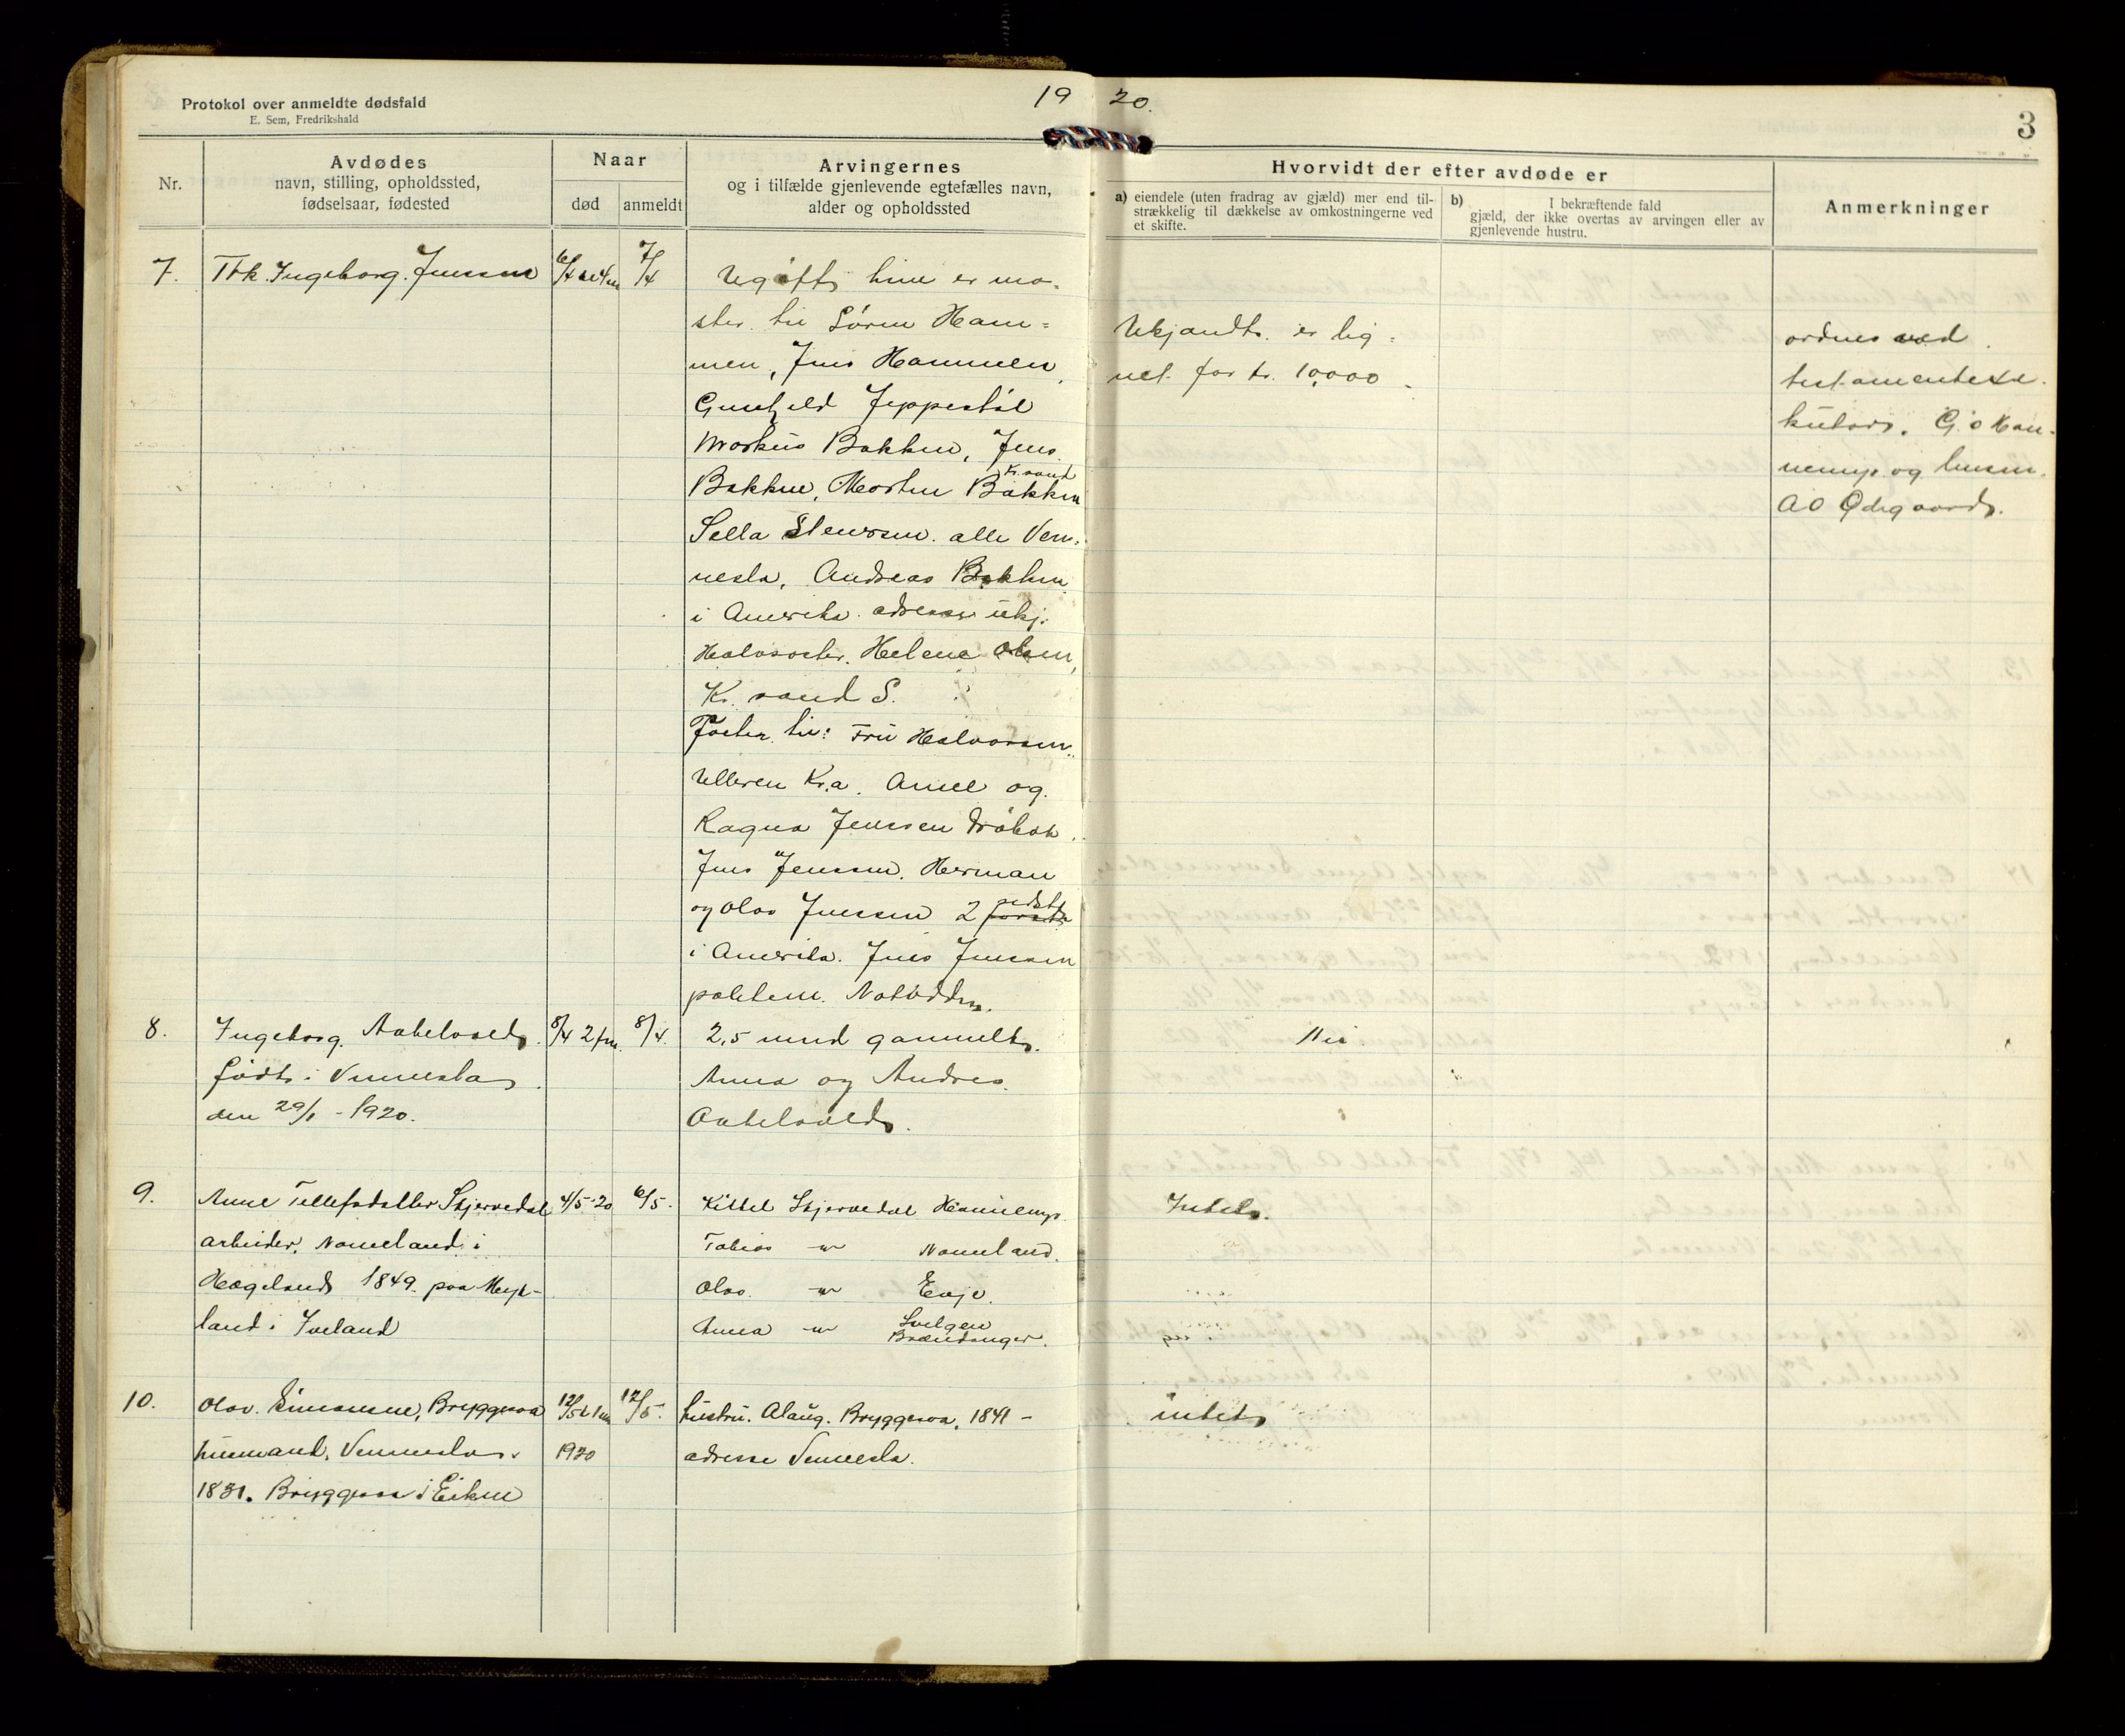 Protokol over anmeldte dødsfald
E. Sem, Fredrikshald
19 20.
3
Nr.
Avdødes
navn, stilling, opholdssted,
fødselsaar, fødested
Naar
død
anmeldt
Arvingernes
og i tilfælde gjenlevende egtefælles navn,
alder og opholdssted
Hvorvidt der efter avdøde er
a) eiendele (uten fradrag av gjæld) mer end til-
strækkelig til dækkelse av omkostningerne ved
et skifte.
b) I bekræftende fald
gjæld, der ikke overtas av arvingen eller av
gjenlevende hustru.
Anmerkninger
7. Frk. Ingeborg Jenssen 6/4 7/4
Ugift, hun er mo-
ster til Søren Ham=
men, Jens Hammen,
Gunhild Jeppestøl
Markus Bakken, Jens
Kr.sand
Bakken, Morten Bakken
Sella Stenersen alle Ven=
nesla, Andreas Bakken
i Amerika adresse ukj.
Halvsøster. Helene Olsen,
Kr.sand S.
Faster til: Fru Halvorsen
Ulleren Kr.a. Anne og
Ragna Jenssen Drøbak
Jens Jenssen. Herman
sidste
og Olav Jenssen 2
i Amerika. Jens Jenssen
Notodden.
Ukjendt. er lig=
net for kr. 10,000
ordnes ved
testamentexe-
kutor. G. O Hun-
nemyr og lensm.
A O Ødegaard.
8. Ingeborg Aabelvold 8/4 2 fm. 8/4.
født i Vennesla
den 29/1 - 1920.
2,5 mnd gammelt.
Anna og Andres
Aabelvold.
Nei
9. Anne Tellefsdatter Skjervedal 4/5-20 6/5.
arbeider, Nomeland i
Hægeland 1849 paa Myk-
land i Iveland
Kittel Skjervedal Hunnemyr
Tobias -"- Nomeland.
Olav -"- Evje.
Anna -"- Svelgen
Brændanger.
Intet.
10. Olav Simonsen, Bryggesaa 12/5 12/5.
husmand, Vennesla. 1920
1831. Bryggesaa i Eiken
hustru. Alaug. Bryggesaa, 1841 -
adresse Vennesla.
intet